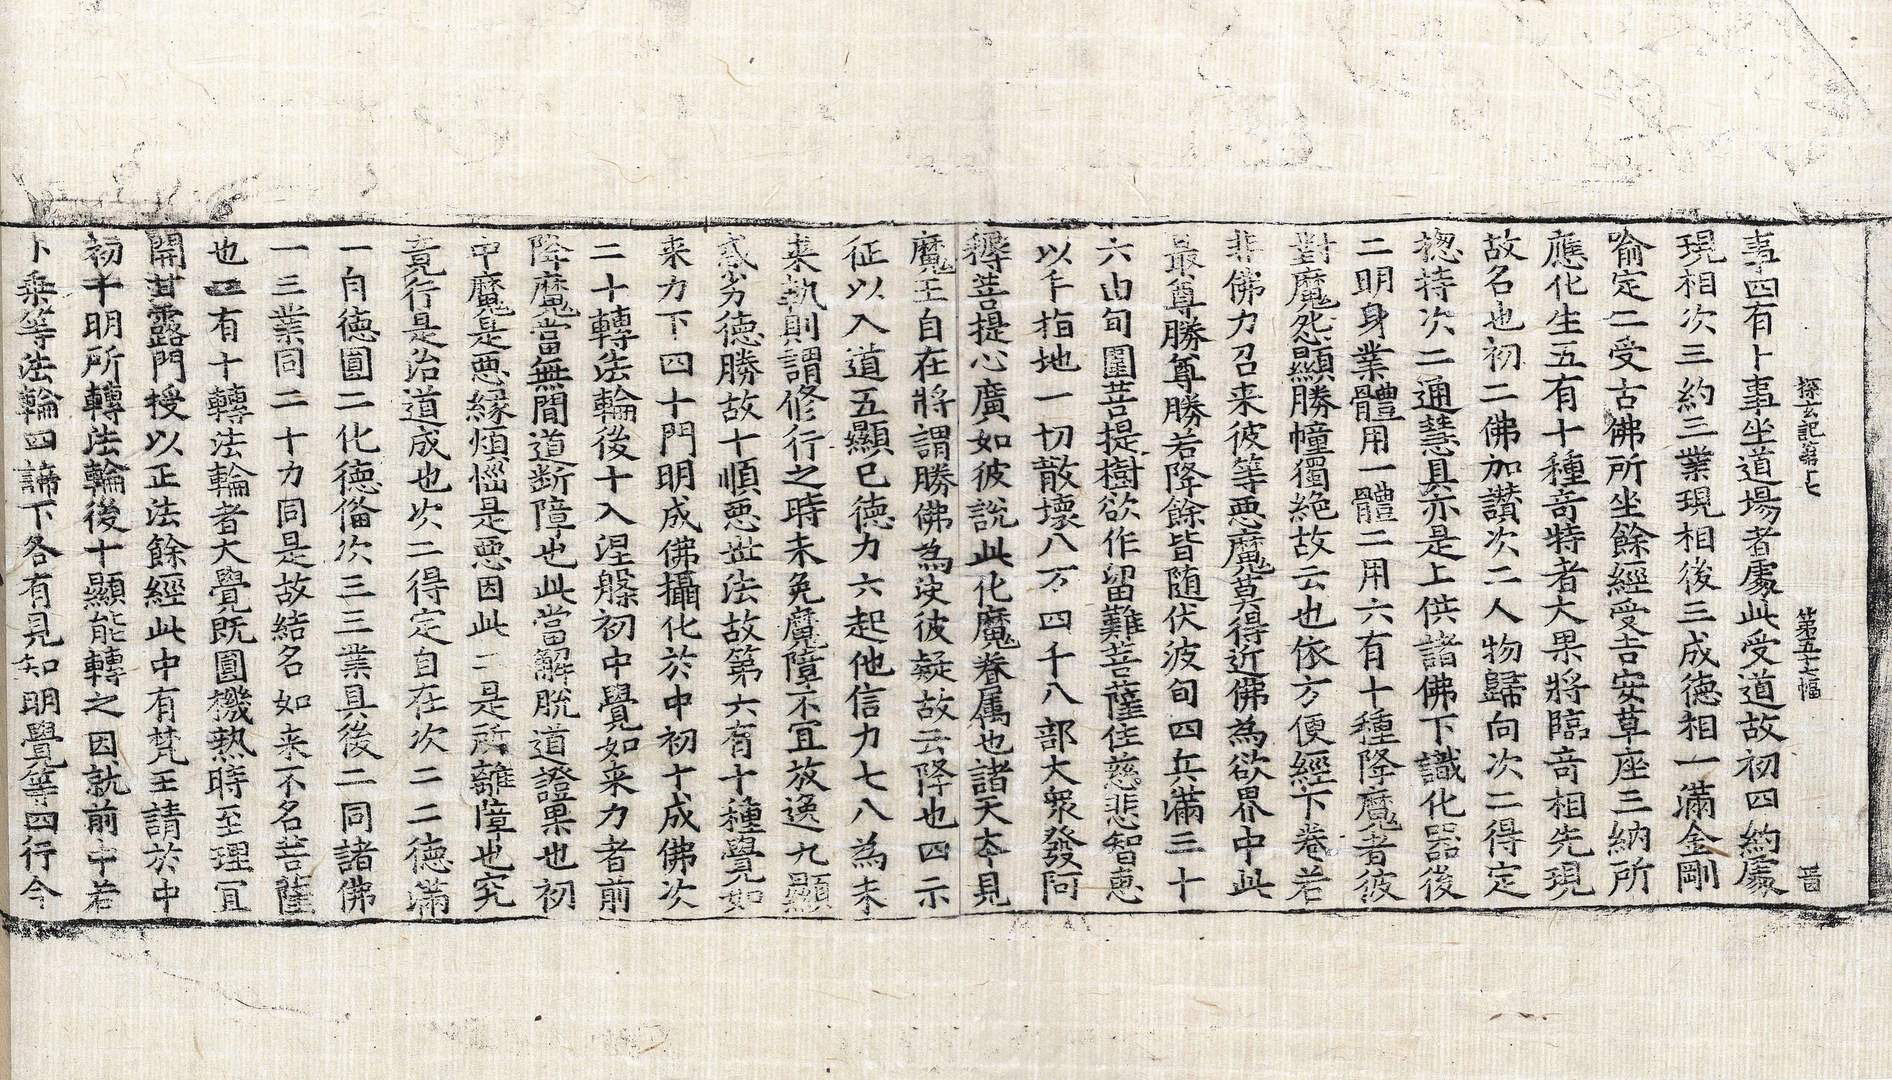 探玄記第十七　第五十七幅　昔
事四有卜事坐道場者處此受道故初四約處
現相次三約三業現相後三成德相一滿金剛
喻定二受古佛所坐餘經受吉安草座三納所
應化生五有十種奇特者大果將臨奇相先現
故名也初二佛加讚次二人物歸向次二得定
揔持次二通慧具亦是上供諸佛下識化器後
二明身業體用一體二用六有十種降魔者彼
對魔惡顯勝幢獨絶故云也依方便經下卷若
非佛力召来彼等惡魔莫得近佛為欲界中此
最尊勝尊勝若降餘皆随伏波旬四兵滿三十
六由旬圍菩提樹欲作留難菩薩住慈悲智恵
以手指地一切散壞八万四千八部大衆發阿
耨菩提心廣如彼說此化魔眷属也諸天夲見
魔王自在將謂勝佛為决彼疑故云降也四示
征以入道五顯已德力六起他信力七八為未
来執則謂修行之時未免魔障不冝放逸九顯
惑劣德勝故十順惡世法故第六有十種覺如
来力下四十門明成佛攝化於中初十成佛次
二十轉法輪後十入涅槃初中覺如来力者前
降魔當無間道断障也此當解脫道證果也初
中魔是惡緣煩惱是惡因此二是所離障也究
竟行是治道成也次二得定自在次二二德滿
一自德圓二化德俻次三三業具後二同諸佛
一三業同二十力同是故結名如来不名菩薩
也二有十轉法輪者大覺既圓機熟時至理冝
開甘露門授以正法餘經此中有梵王請於中
初十明所轉法輪後十顯能轉之因就前中若
卜乗等法輪四諦下各有見知明覺等四行今